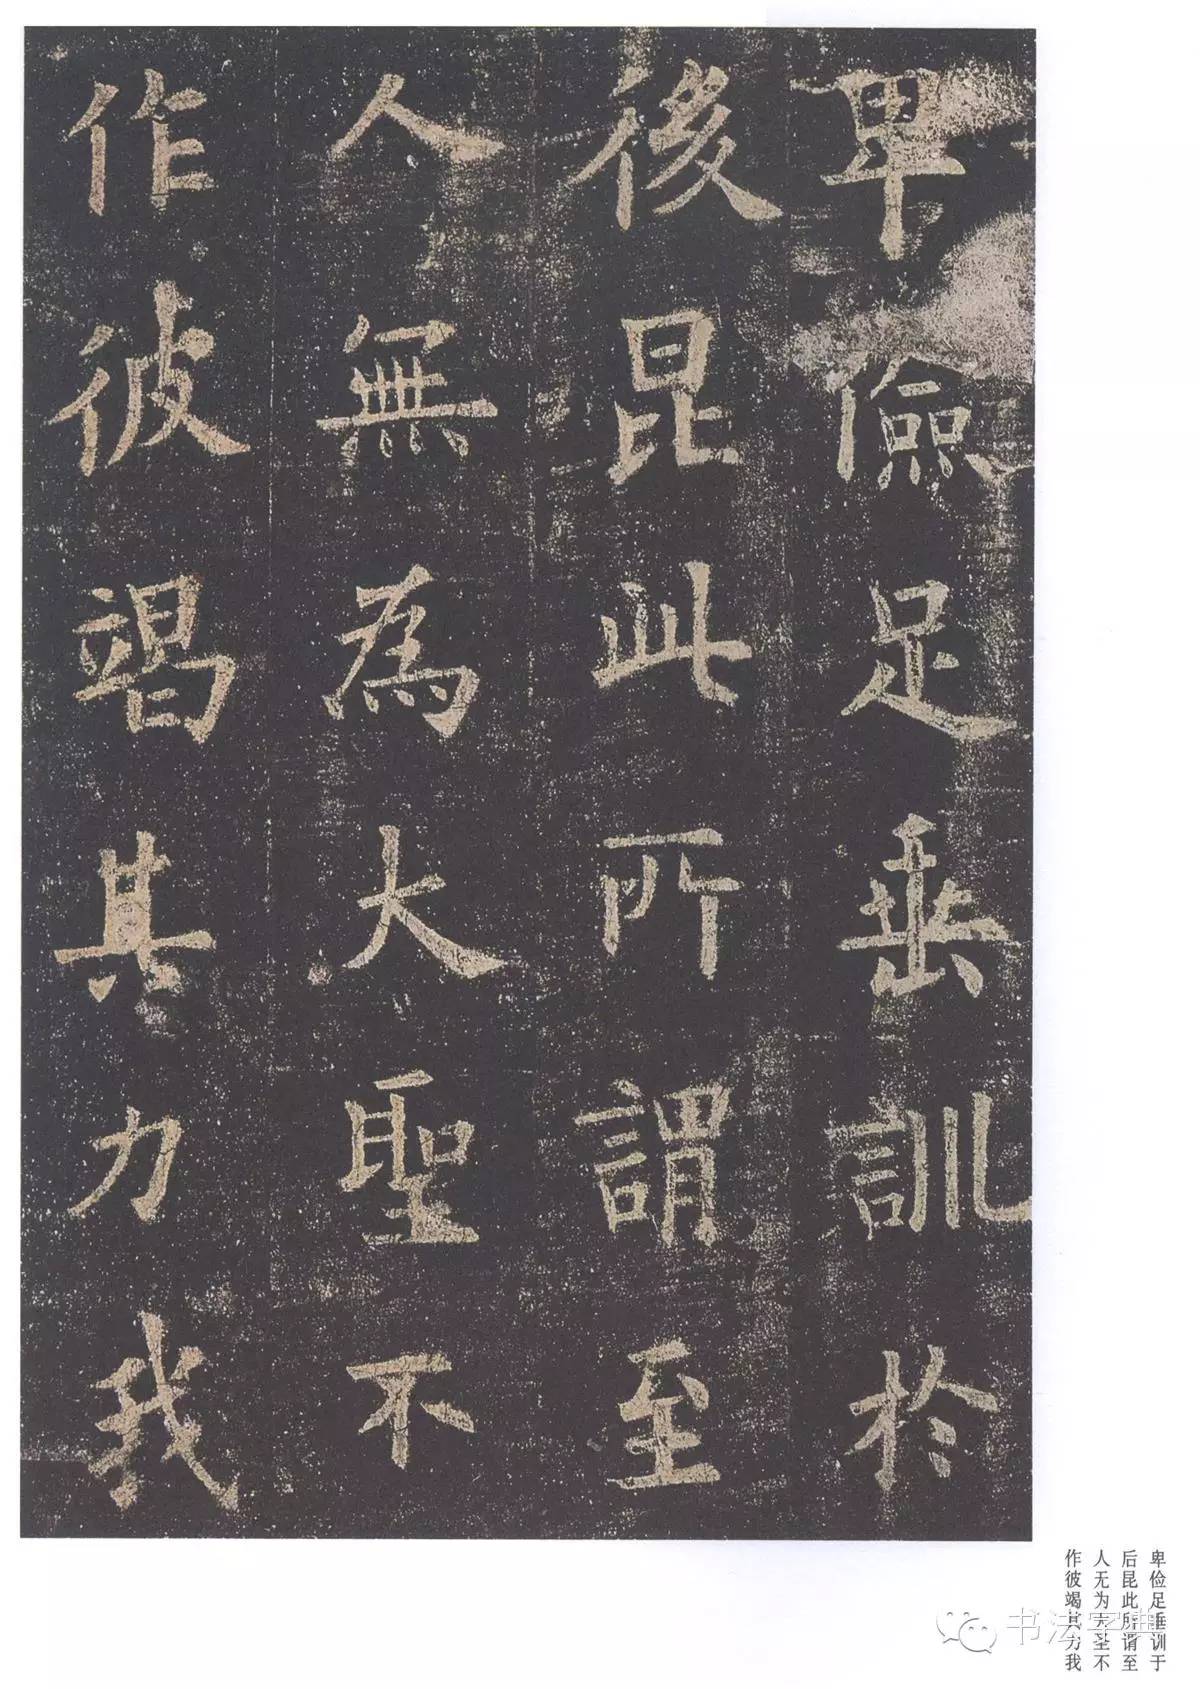 卑儉足垂訓於
後昆此所謂至
人無為大聖不
作彼竭其力我
卑俭足垂训于
后昆此所谓至
人无为大圣不
作彼竭其力我
书法字典